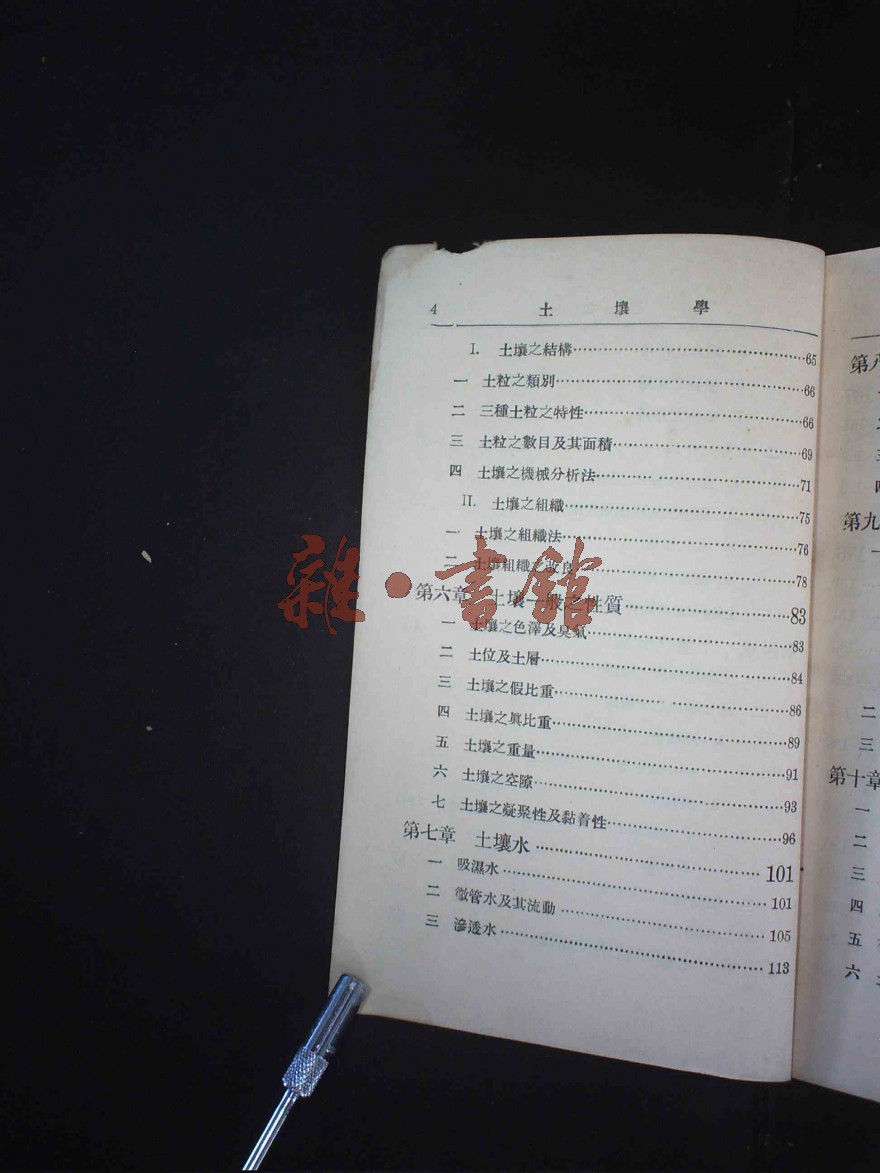 4 土壤學
I. 土壤之結構 65
一 土粒之類別 66
二 三種土粒之特性 66
三 土粒之數目及其面積 69
四 土壤之機械分析法 71
II. 土壤之組織 75
一 土壤之組織法 76
二 土壤組織之改良 78
第六章 土壤一般之性質 83
一 土壤之色澤及臭氣 83
二 土位及土層 84
三 土壤之假比重 86
四 土壤之眞比重 89
五 土壤之重量 91
六 土壤之空隙 93
七 土壤之凝聚性及黏着性 96
第七章 土壤水 101
一 吸濕水 101
二 微管水及其流動 105
三 滲透水 113
雜·書館
第八
四
第九
一
二
三
第十章
一
二
三
四
五
六